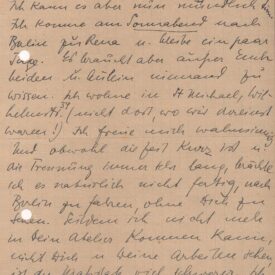 Ich kann es aber nun mündlich
Ich komme am Sonnabend nach
Berlin zu Rena u. bleibe ein paar
Tage. Es braucht aber außer Euch
beiden niemand zu
wissen. Ich wohne in St Michael, Wil-
helmstr. (nicht dort wo wir dereinst
waren!) Ich freie mich wahnsinnig
Und obwohl die Zeit kurz ist u.
die Trennung immer lang, brächte
ich es natürlich nicht fertig, nach
Berlin zu fahren, ohne Dich zu
sehen. Seitdem ich nicht mehr
in Dein Atelier kommen kann
nicht Dich u Deine Arbeiten sehen
ist der viel schwerer